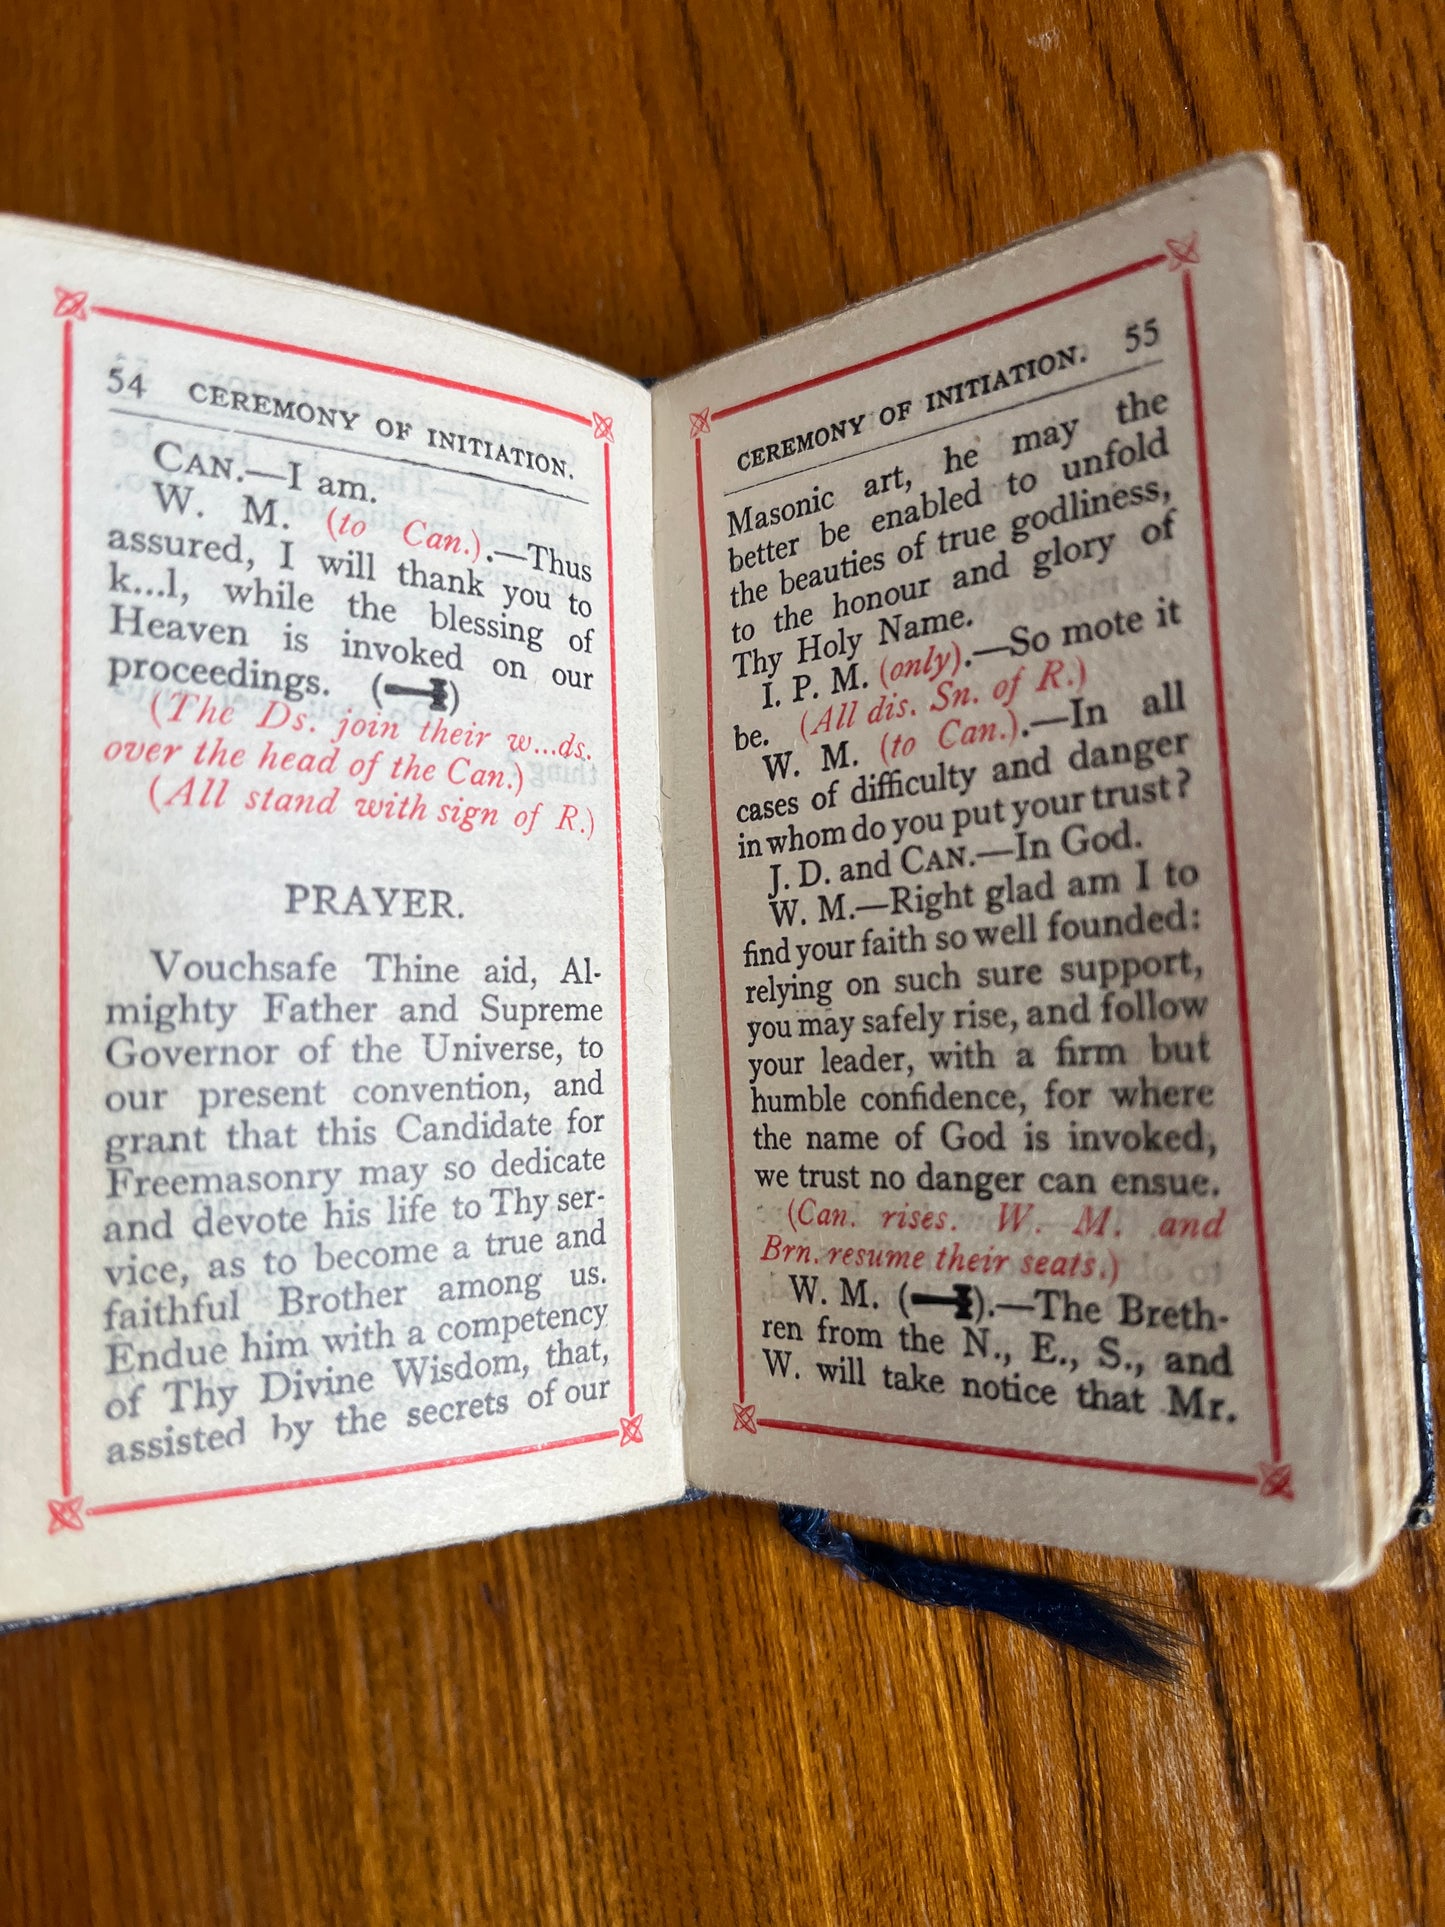 54 CEREMONY OF INITIATION.
CAN.—I am.
W. M. (to Can.).—Thus
assured, I will thank you to
k...l, while the blessing of
Heaven is invoked on our
proceedings. ( )
(The Ds. join their w...ds.
over the head of the Can.)
(All stand with sign of R.)
PRAYER.
Vouchsafe Thine aid, Al-
mighty Father and Supreme
Governor of the Universe, to
our present convention, and
grant that this Candidate for
Freemasonry may so dedicate
and devote his life to Thy ser-
vice, as to become a true and
faithful Brother among us.
Endue him with a competency
of Thy Divine Wisdom, that,
assisted by the secrets of our
CEREMONY OF INITIATION. 55
Masonic art, he may the
better be enabled to unfold
the beauties of true godliness,
to the honour and glory of
Thy Holy Name.
I. P. M. (only).—So mote it
be. (All dis. Sn. of R.)
W. M. (to Can.).—In all
cases of difficulty and danger
in whom do you put your trust?
J. D. and CAN.—In God.
W. M.—Right glad am I to
find your faith so well founded:
relying on such sure support,
you may safely rise, and follow
your leader, with a firm but
humble confidence, for where
the name of God is invoked,
we trust no danger can ensue.
(Can. rises. W. M. and
Brn. resume their seats.)
W. M. ( ).—The Breth-
ren from the N., E., S., and
W. will take notice that Mr.